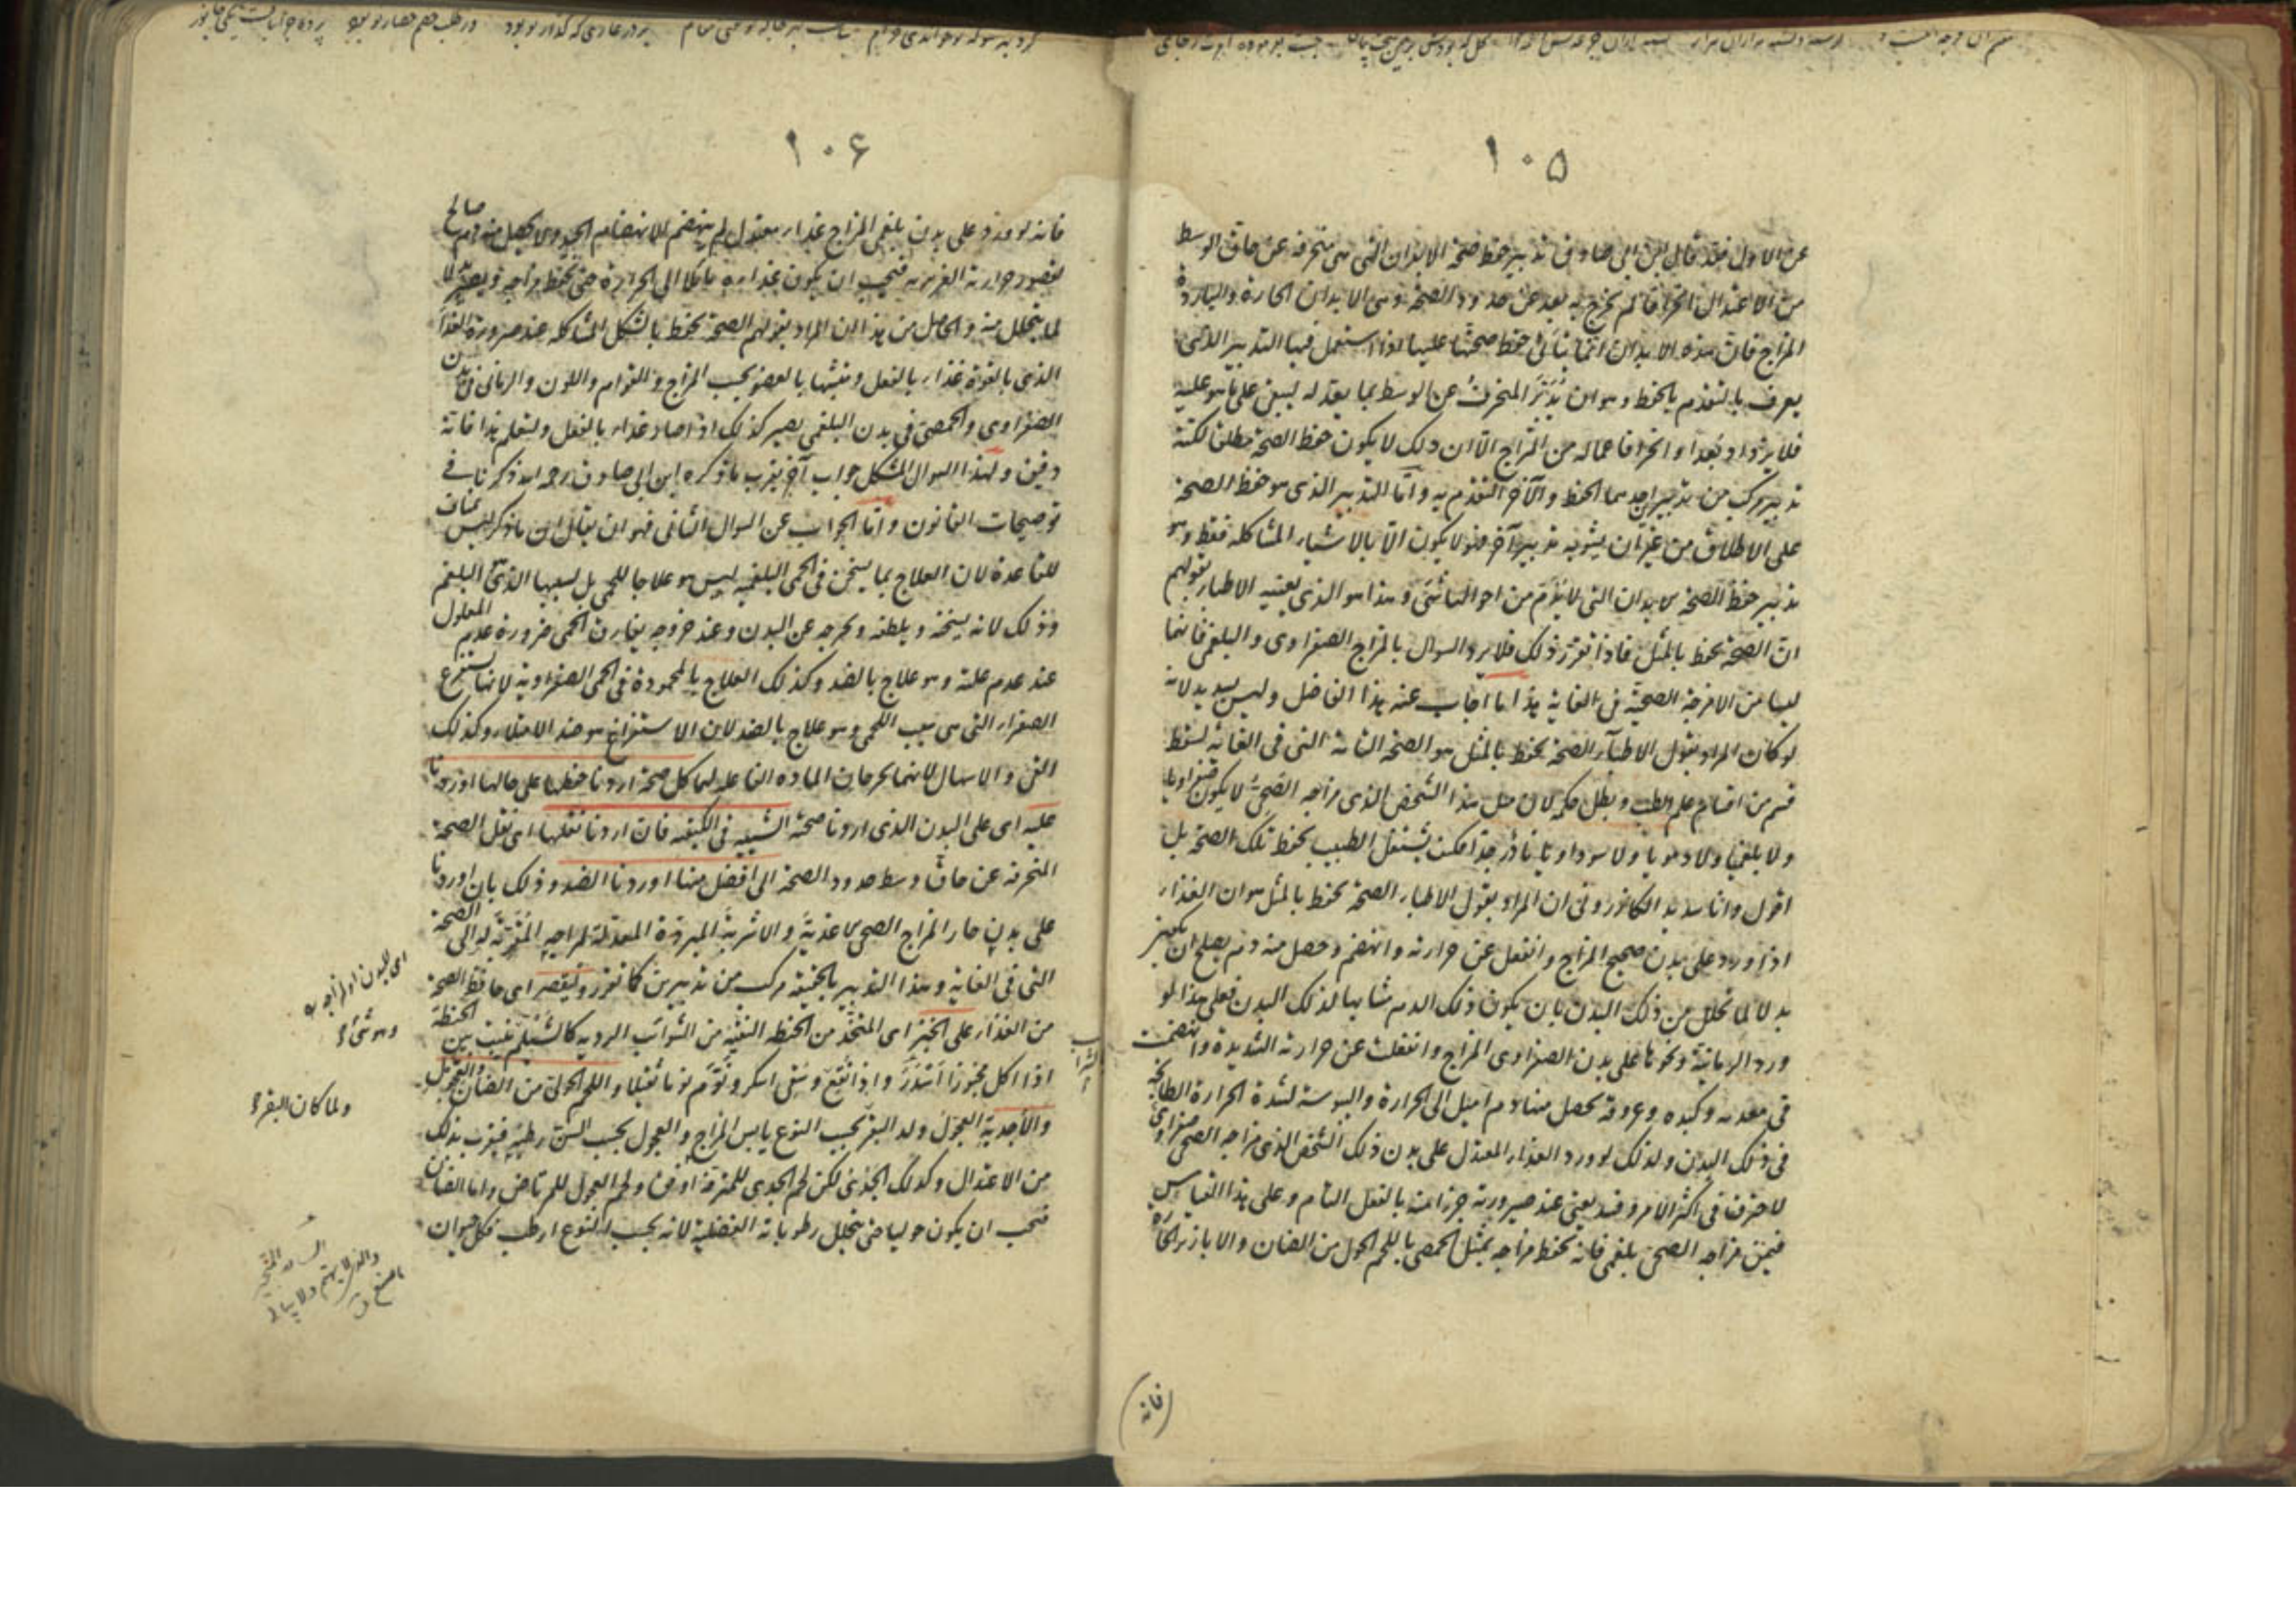 ١٠٥
عن الاول فقد قال ابن ابى صادق تدبير حفظ صحة الابدان التى هى منحرفة عن حاق الوسط
من الاعتدال انحرافا لم تخرج به بعد عن حدود الصحة وهى الابدان الحارة والباردة
المزاج فان هذه الابدان انما يتأتى حفظ صحتها عليها اذا استعمل فيها التدبير الذى
يعرف بالتقدم بالحفظ وهو ان يدبر المنحرف عن الوسط بما يعدله ليبقى على ما هو عليه
فلا يزداد بعدا وانحرافا عما له من المزاج الا ان ذلك لا يكون حفظ الصحة مطلقا لكنه
تدبير مركب من تدبيرين احدهما الحفظ والآخر التقدم به واما التدبير الذى هو حفظ الصحة
على الاطلاق من غير ان يشوبه تدبير آخر فهو لا يكون الا بالاشياء المشاكلة فقط وهو
تدبير حفظ الصحة للابدان التى لا يذم من احوالها شىء وهذا هو الذى يعنيه الاطباء بقولهم
ان الصحة تحفظ بالمثل فاذا تقرر ذلك فلا يرد السوال بالمزاج الصفراوى والبلغمى فانهما
ليسا من الامزجة الصحية فى الغاية هذا ما اجاب عنه هذا الفاضل وليس بسديد لانه
لو كان المراد بقول الاطباء الصحة تحفظ بالمثل هو الصحة التامة التى فى الغاية لسقط
قسم من اقسام علم الطب وبطل حكمه لان مثل هذا الشخص الذى مزاجه الصحى لا يكون صفراويا
ولا بلغميا ولا دمويا ولا سوداويا نادر جدا فكيف يشتغل الطبيب بحفظ تلك الصحة بل
اقول وانا سديد الكازرونى ان المراد بقول الاطباء الصحة تحفظ بالمثل هو ان الغذاء
اذا ورد على بدن صحيح المزاج وانفعل عن حرارته وانهضم وحصل منه دم يصلح ان يصير
بدلا لما تحلل من ذلك البدن بان يكون ذلك الدم مشابها لذلك البدن فعلى هذا لو
ورد الرمانية ونحوها على بدن الصفراوى المزاج وانفعلت عن حرارته الشديدة وانهضمت
فى معدته وكبده وعروقه يحصل منها دم اميل الى الحرارة واليبوسة لشدة الحرارة الطابخة
فى ذلك البدن ولذلك لو ورد الغذاء المعتدل على بدن ذلك الشخص الذى مزاجه الصحى صفراوى
لاحترق فى اكثر الامر وفسد يعنى عند صيرورته جزءا منه بالفعل التام وعلى هذا القياس
فيمن مزاجه الصحى بلغمى فانه تحفظ مزاجه بمثل الحمصى باللحم الحولى من الضان والابازير الحارة
(فانه)
١٠۶
فانه لو ورد على بدن بلغمى المزاج غذاء معتدل لم ينهضم الانهضام الجيد ولا يحصل منه دم صالح
لقصور حرارته الغريزية فيجب ان يكون غذاؤه مائلا الى الحرارة حتى تحفظ مزاجه ويصير بدلا
لما يتحلل منه والحاصل من هذا ان المراد بقولهم الصحة تحفظ بالشكل المشاكلة عند صيرورة الغذاء
الذى بالقوة غذاء بالفعل وتشبها بالعضو بحسب المزاج والقوام واللون والرمانى فى بدن
الصفراوى والحمصى فى بدن البلغمى يصير كذلك اذا صار غذاء بالفعل وليعلم هذا فانه
دقيق ولهذا السوال المشكل جواب آخر يقرب ما ذكره ابن ابى صادق رحمه الله ذكرنا فى
توضيحات القانون واما الجواب عن السوال الثانى فهو ان يقال ان ما ذكر ليس بمناف
للقاعدة لان العلاج بما يسخن فى الحمى البلغمية ليس هو علاجا للحمى بل لسببها الذى هو البلغم
وذلك لانه يسخنه ويلطفه ويخرجه عن البدن وعند خروجه يفارق الحمى ضرورة عدم المعلول
عند عدم علته وهو علاج بالضد وكذلك العلاج بالمحمودة فى الحمى الصفراوية لانها تستفرغ
الصفراء التى هى سبب الحمى وهو علاج بالضد لان الاستفراغ هو ضد الامتلاء وكذلك
القىء والاسهال لانهما يخرجان المادة الفاعلة لهما كل صحة اردنا حفظها على حالها اوردنا
عليه اى على البدن الذى اردنا صحته الشبيه فى الكيفية فان اردنا نقلها اى نقل الصحة
المنحرفة عن حاق وسط حدود الصحة الى افضل منها اوردنا الضد وذلك بان اوردنا
على بدن حار المزاج الصحى الاغذية والاشربة المبردة المعدلة لمزاجه المقربة له الى الصحة
التى فى الغاية وهذا التدبير بالحقيقة مركب من تدبيرين كما تقرر وليقتصر اى حافظ الصحة
من الغذاء على الخبز اى المتخذ من الحنطة النقية من الشوائب الردية كالشيلم ينبت بين الحنطة
اذا اكل مخبوزا اسدر واذا نقع وسقى اسكر ونوم نوما ثقيلا واللحم الحولى من الضان والعجول
والاجدية العجول ولد البقر بحسب النوع يابس المزاج والعجول بحسب السن رطبة فيقرب بذلك
من الاعتدال وكذلك الجدى لكن لحم الجدى للمترفة اوفق ولحم العجول للمرتاض واما الضان
فيجب ان يكون حوليا حتى يتحلل رطوباته الفضلية لانه بحسب النوع ارطب فكل حيوان
اى للبدن او لمزاجه
ولما كان البقر